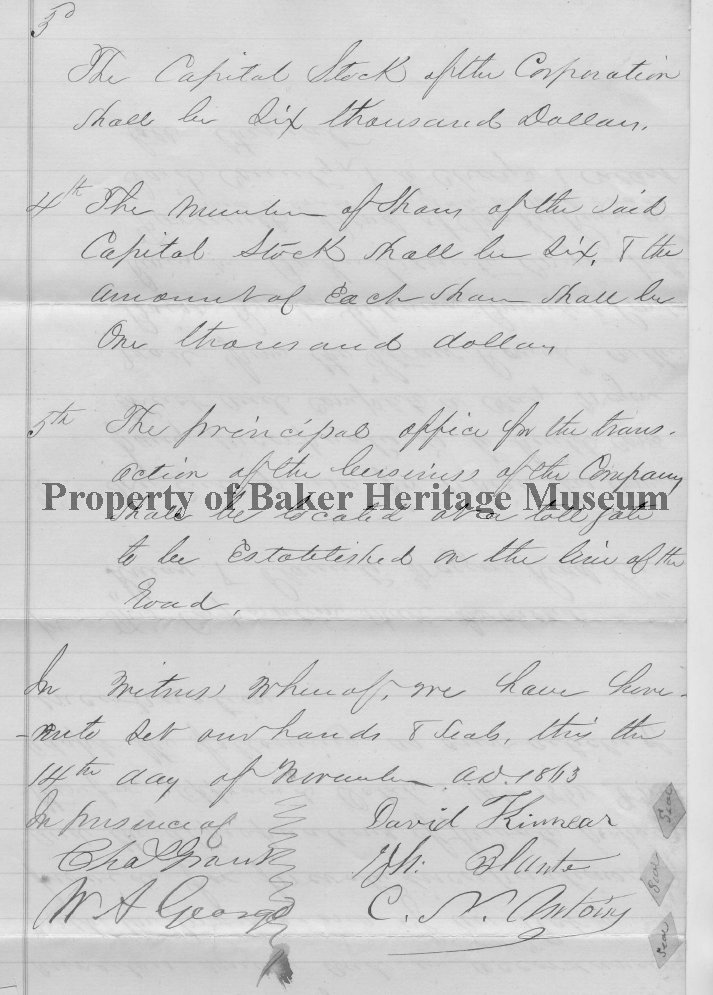 3d
The Capital Stock of the Corporation
shall be Six thousand Dollars.
4th The number of Shares of the said
Capital Stock shall be Six, & the
amount of Each Share shall be
One thousand dollars
5th The principal office for the trans-
action of the business of the Company
Property of Baker Heritage Museum
shall be located at a toll gate
to be Established on the line of the
Road.
In Witness Whereof, we have here-
-unto Set our hands & Seals, this the
14th day of November A.D. 1863
In presence of David Kinnear Seal
Chas Grant Blunte Seal
W A George C. N. Antoiny Seal